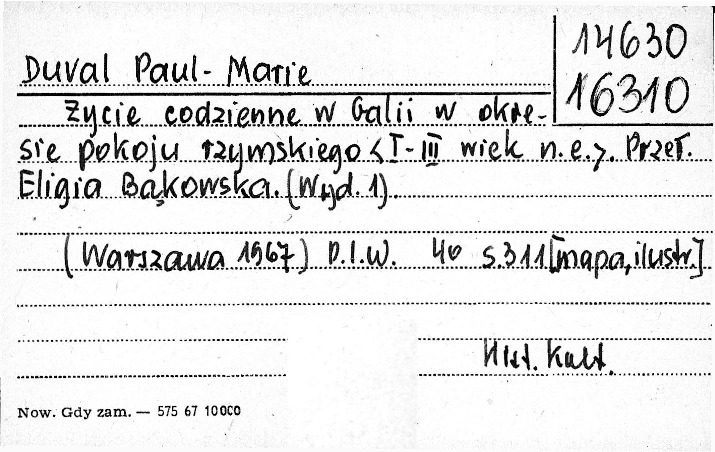 14630
16310
Duval Paul-Marie
Życie codzienne w Galii w okre-
sie pokoju rzymskiego <I-III wiek n.e.>. Przeł.
Eligia Bąkowska. (Wyd. 1)
(Warszawa 1967) P.I.W. 4° s. 311 [mapa, ilustr.]
Hist. Kult.
Now. Gdy zam. — 575 67 10000